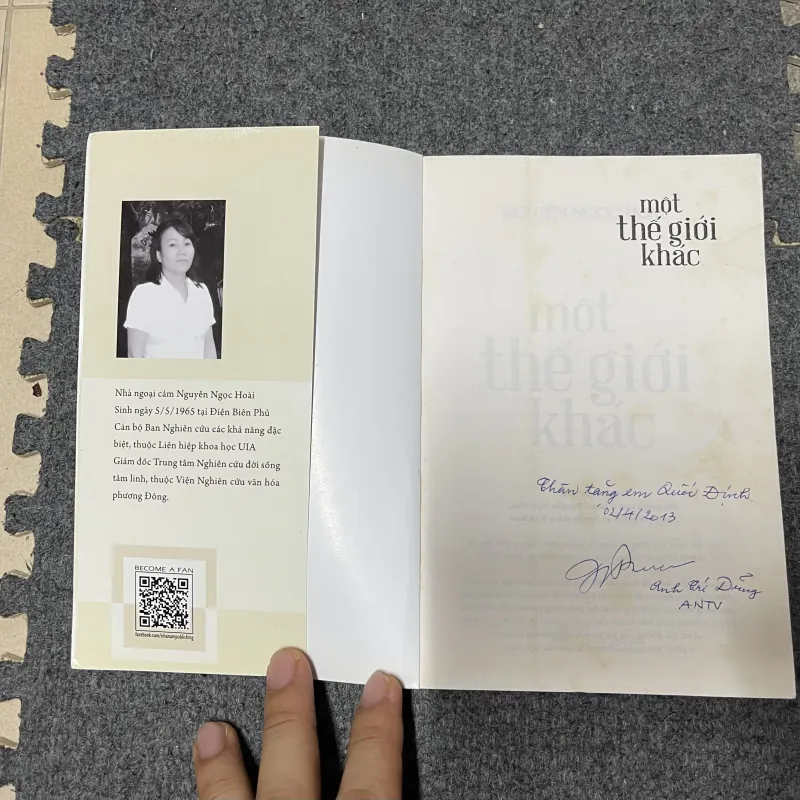 Nhà ngoại cảm Nguyễn Ngọc Hoài
Sinh ngày 5/5/1965 tại Điện Biên Phủ
Cán bộ Ban Nghiên cứu các khả năng đặc
biệt, thuộc Liên hiệp khoa học UIA
Giám đốc Trung tâm Nghiên cứu đời sống
tâm linh, thuộc Viện Nghiên cứu văn hóa
phương Đông.
BECOME A FAN
facebook.com/nhanampublishing
một
thế giới
khác
một
thế giới
khác
Thân tặng em Quốc Định
02/4/2013
Anh Trí Dũng
ANTV